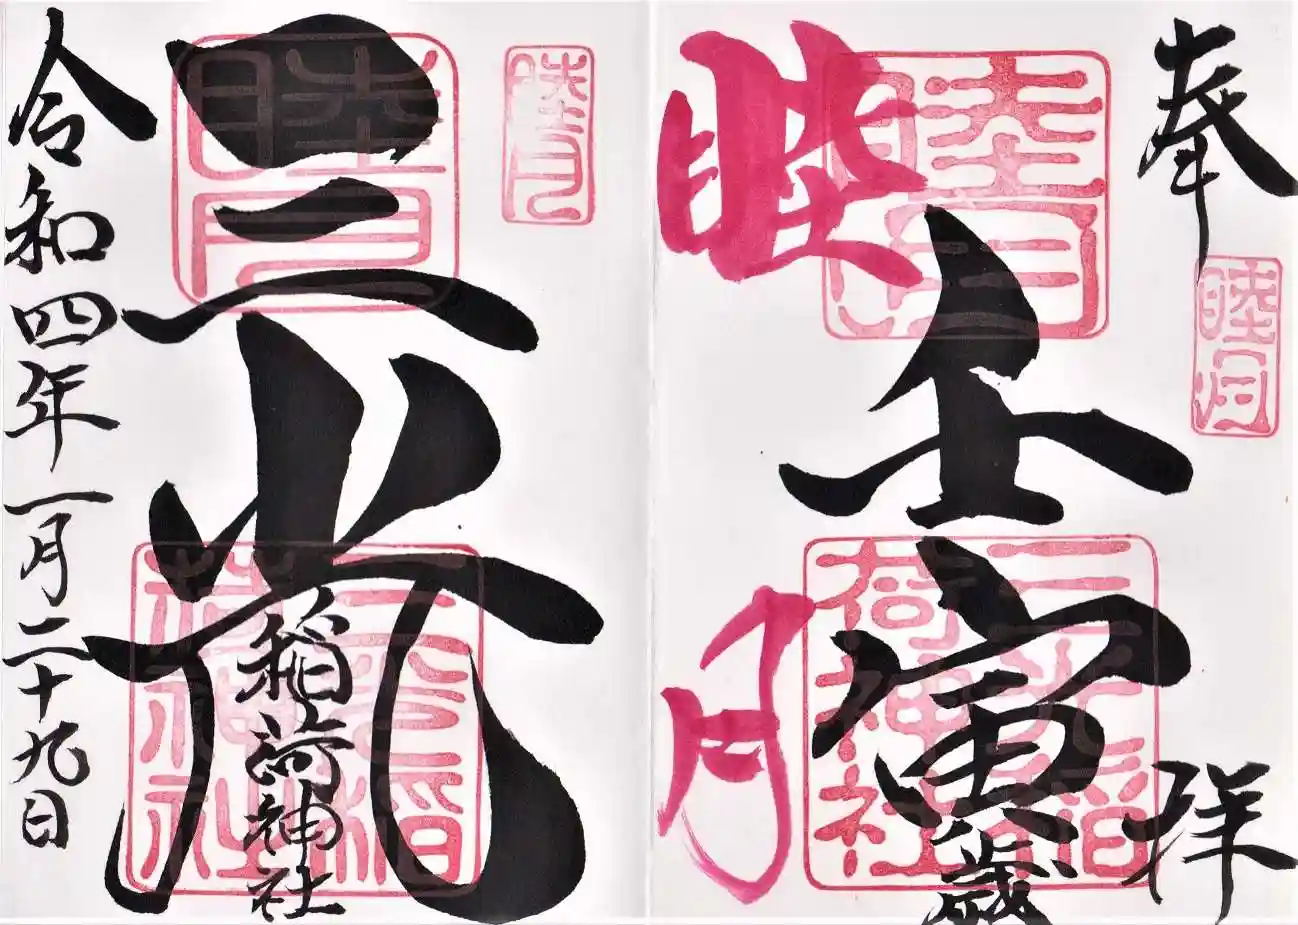 奉拝
壬寅歳
睦月
睦月
睦月
三光稲荷神社
睦月
三光
稲荷神社
睦月
三光稲荷神社
令和四年一月二十九日